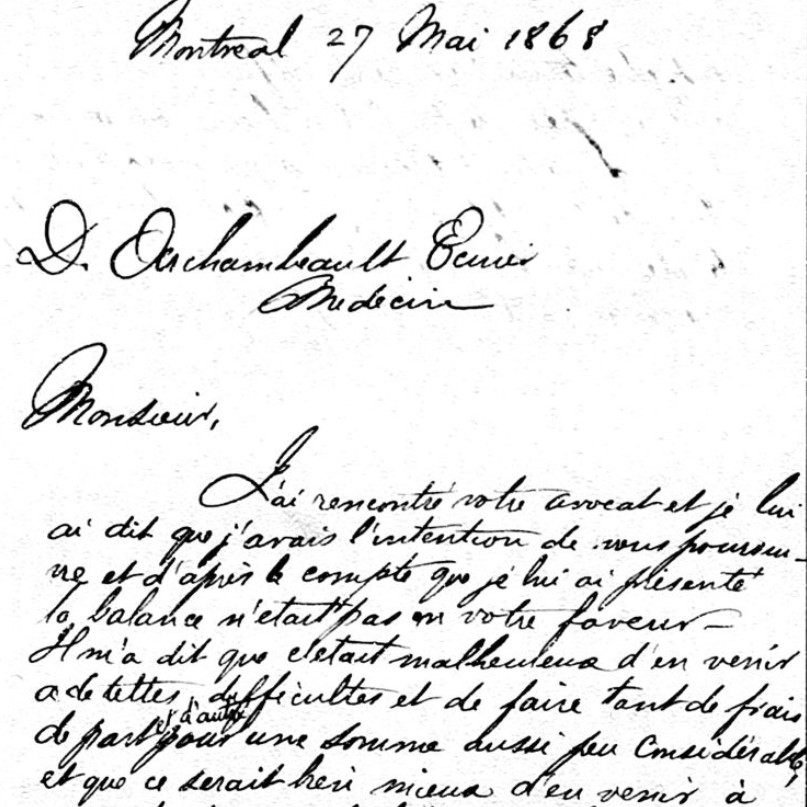 Montreal 27 Mai 1868
D. Archambeault Ecuier
Medecin
Monsieur,
J'ai rencontré votre avocat et je lui
ai dit que j'avais l'intention de vous poursui-
vre et d'après le compte que je lui ai présenté
la balance n'etait pas en votre faveur_
Il m'a dit que c'etait malheureux d'en venir
a de telles difficultes et de faire tant de frais
de part et d'autre pour une somme aussi peu considérable,
et que ce serait bien mieux d'en venir à